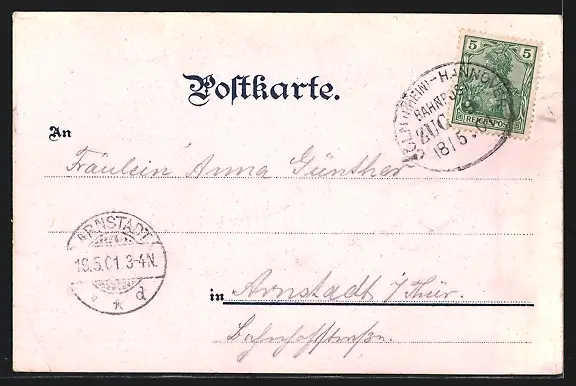 Postkarte.
5 5
REICHSPOST
(RHEIN)-HANNOVER
BAHNPOST
ZUG
18 5
An
Fräulein Anna Günther
ARNSTADT
16.5.01.3-4N.
* d
in Arnstadt i/Thür.
Bahnhofstraße.